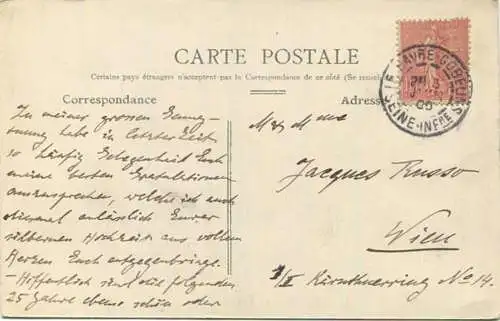 CARTE POSTALE
Certains pays étrangers n'acceptent pas la Correspondance de ce côté (Se rensei
Correspondance
Zu meiner grossen Genug-
tuung habe in letzter Zeit
so häufig Gelegenheit Euch
meine besten Gratulationen
auszusprechen, welche ich auch
diesmal anlässlich Eurer
silbernen Hochzeit aus vollem
Herzen Euch entgegenbringe.
- Hoffentlich sind die folgenden
25 Jahre ebenso schön oder
Adres
M & Mme
Jacques Russo
Wien
I/I Kärnthnerring No 14.
LE HAVRE GOBELINS
SEINE-INFRE